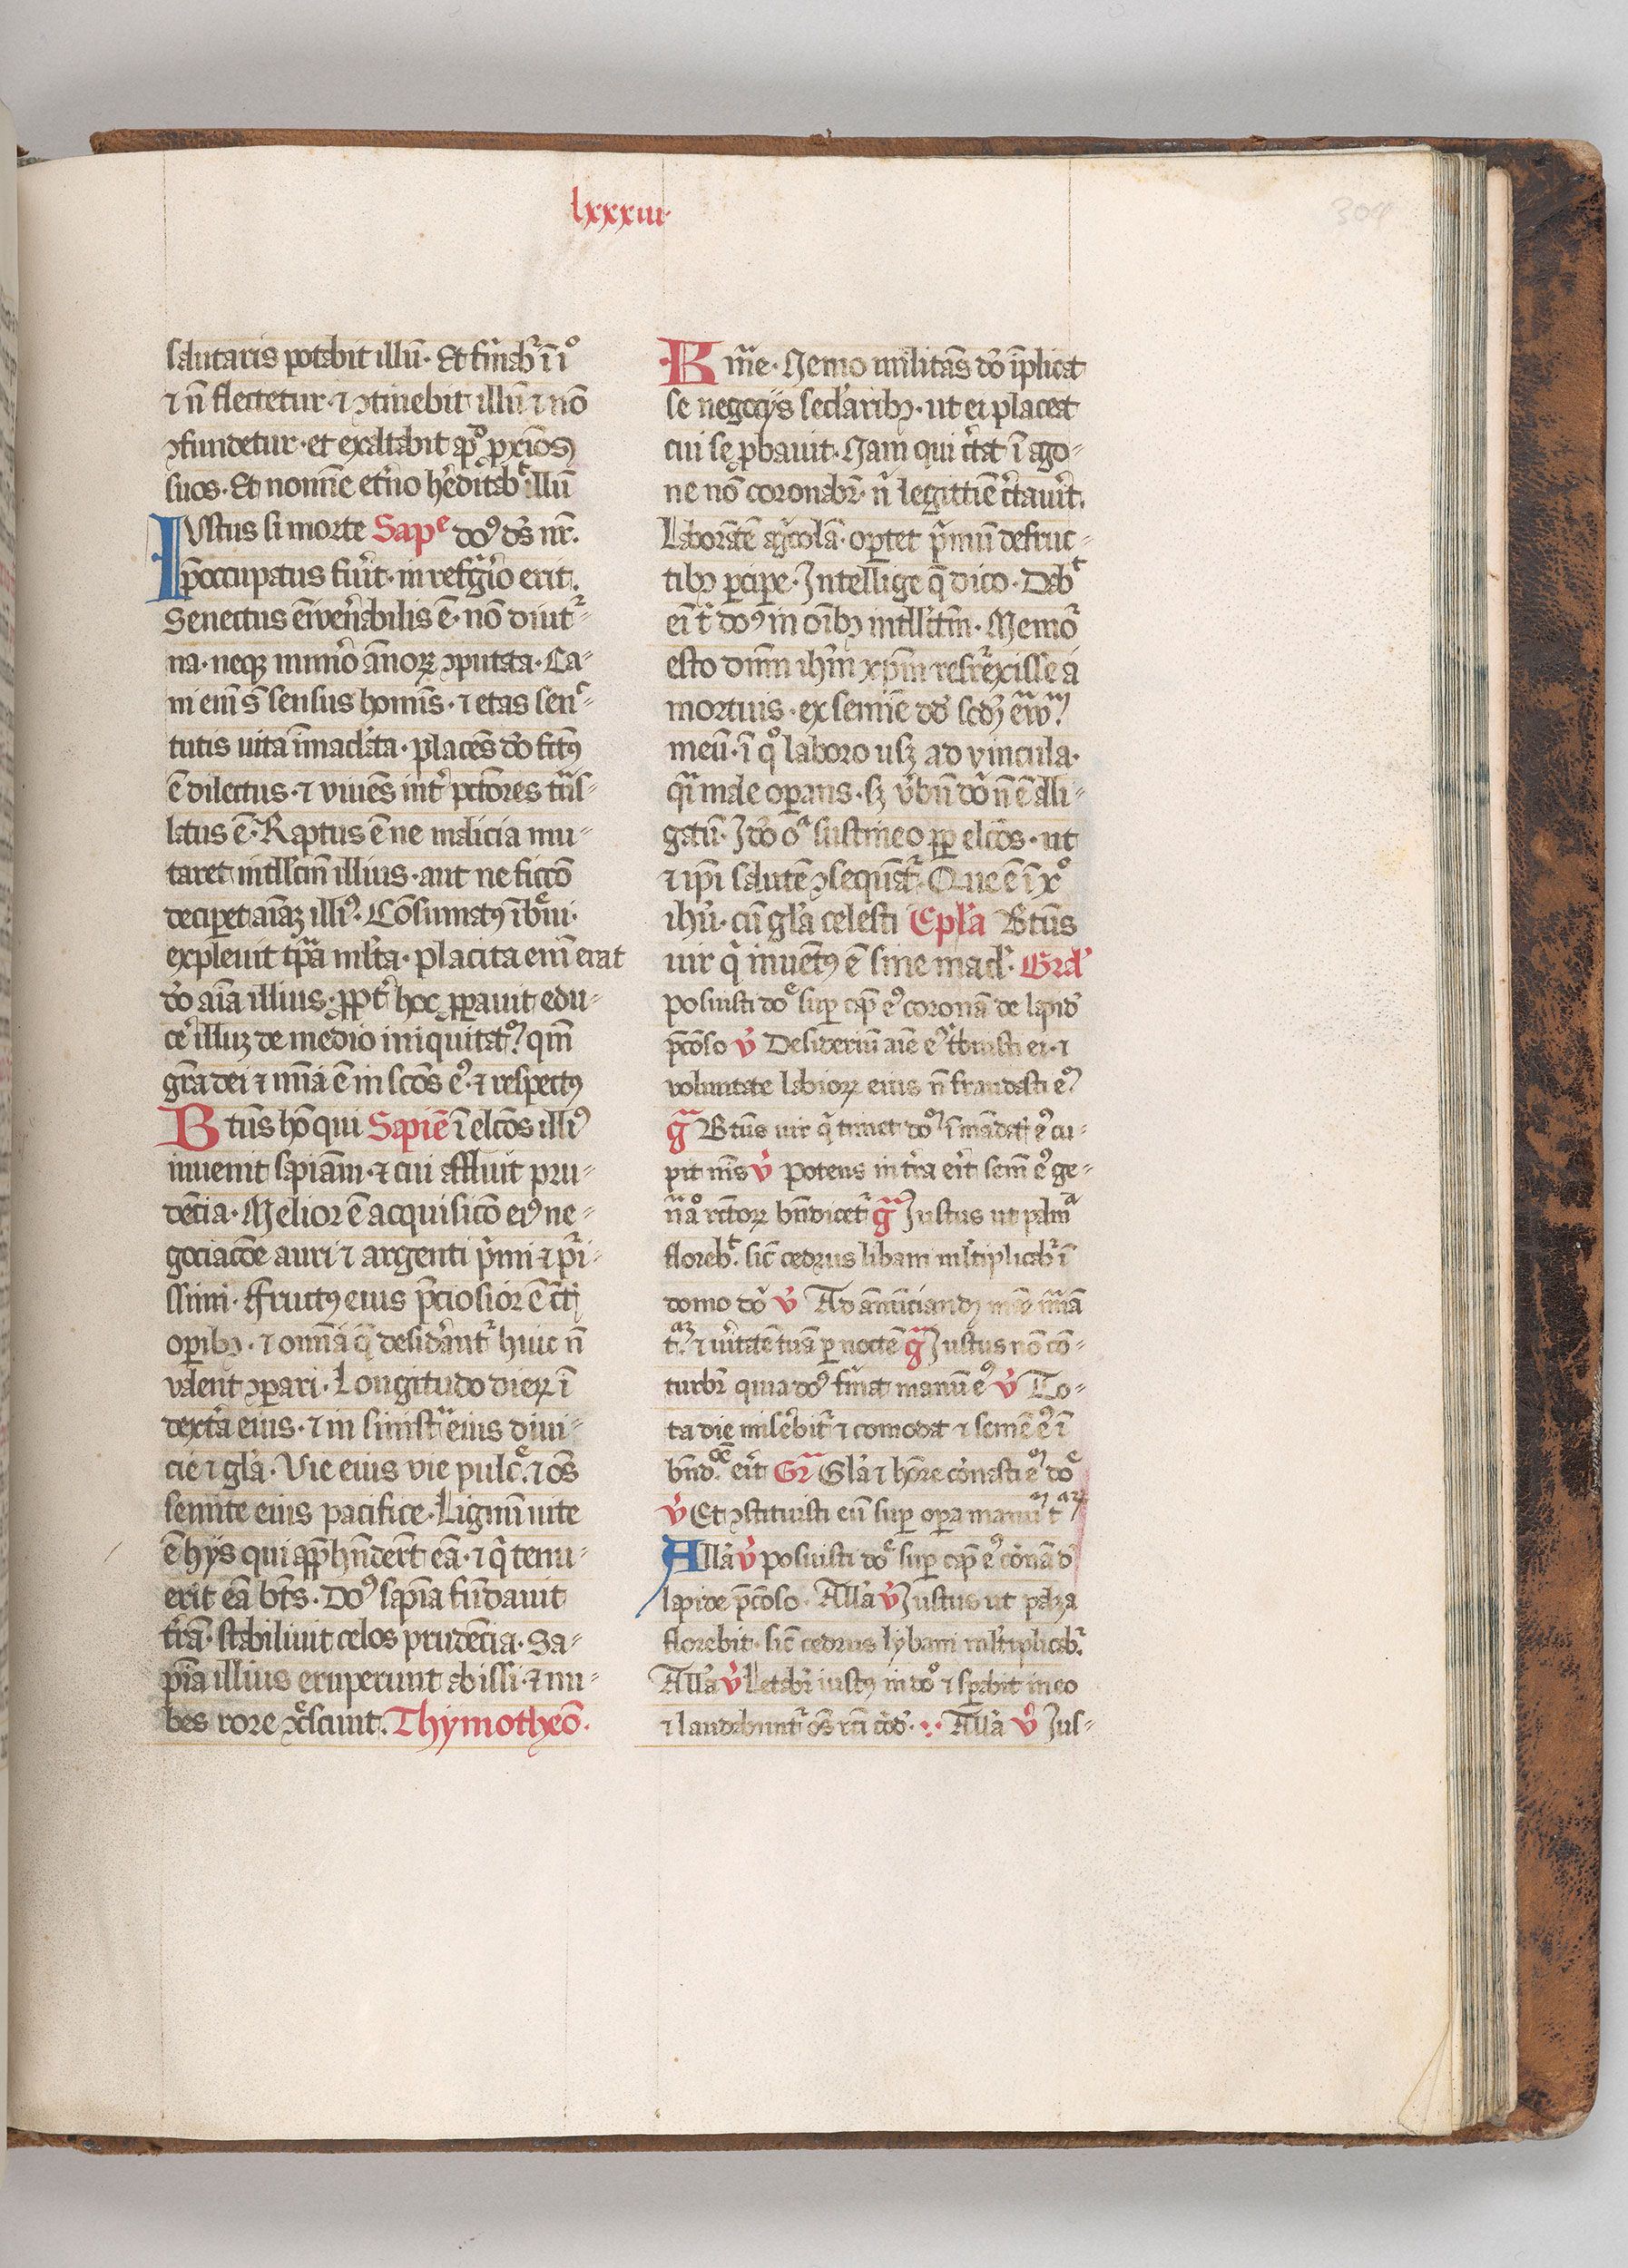 lxxxiii·
304
salutaris potabit illū· Et firͥabͬ ī iͦ
⁊ n̄ flectetur· ⁊ ꝯtinebit illū ⁊ nō
ꝯfundetur· et exaltabit apͦ ꝓxīos
suos· Et nomīe et̉no h̉editabͭ illū
IUstus si morte Sapͤ doꝰ dꝰs nr̄·
p̄occupatus fu̓it· in refͥg̓io erit·
Senectus ei̅ ven̓abilis ē· nō diutͬ⸗
na· neqꝫ num̓o ānoꝝ ꝯputata· Ca⸗
ni eni̅ s̄ sensus homīs· ⁊ etas senͨ⸗
tutis uita īmacl̓ata· placēs dō fc̄tꝰ
ē dilectus· ⁊ viuēs int̓ pctōres tͣns⸗
latus ē· Raptus ē ne malicia mu⸗
taret intllc̄m illius· aut ne ficcō
decip̱et aīaꝫ illiꝰ· Cōsumatꝰ ī bͤui·
expleuit tp̄a mlt̓a· placita eni̅ erat
dō aīa illius· ꝓpt̓ hoc ꝓꝑauit edu⸗
ce̓ illuꝫ de medio iniquitatꝫ qm̄
gr̄a dei ⁊ mīa ē in scōs eꝰ· ⁊ respectꝰ
Btūs hō qui Sapiē ī elcōs illiꝰ
inuenit sapiam̄· ⁊ cui affluit pru⸗
dēcia· Melior ē acquisicō eiꝰ ne⸗
gociacōe auri ⁊ argenti pͥmi ⁊ puͥ⸗
ssimi· Fructꝰ eius p̄ciosior ē cūctͥ
opibꝫ· ⁊ omīa q̄ desid̓antͬ huic n̄
valent ꝯpari· Longitudo dieꝝ ī
dext̓a eius· ⁊ in sinistͣ eius diui⸗
cie ⁊ gl̓a· Vie eius vie pulcͤ· ⁊ oēs
semite eius pacifice· Lignū uite
ē hys qui app̄hn̄derīt eā· ⁊ qͥ tenu⸗
erit eā bt̄s· Doꝰ sapīa fūdauit
tr̄a· stabiliuit celos prudēcia· Sa⸗
pīa illius eruperunt abissi· ⁊ nu⸗
bes rore ꝯcͤscunt· Thymotheō·
Kͬme· Nemo militās dō īplicat
se negocijs secl̓aribꝫ· ut ei placeat
cui se ꝓbauit· Nam qui c̓tat ī ago⸗
ne nō coronabͬ· nͥ legittīe c̓tau̓it·
Laborātē agͥcolā· oportet pͥmū de fruc⸗
tibꝫ p̱cipe· Intellige q̄ dico· Dabͭ
ei̅ tͥ doꝰ in oībꝫ intll̓ctm̄· Memoͬ
esto dnm̄ ihm̄ xp̄m resrͬexisse a
mortuis· ex semīe dd̓ scdꝫ ew̄ᵐ
meū· ī qͦ laboro usqꝫ ad vincula·
qͣi male operans· sꝫ ūbū doͥ n̄ ē alli⸗
gatū· Idō oͣ sustineo ꝓp̱ elcōs· ut
⁊ ip̄i salutē ꝯsequātͬ· Que ē ī xͦ
ihū· cū gl̓a celesti Epl̓a Btūs
uir qͥ inuētꝰ ē sine macl̓· Grdl̓
posuisti doͤ suꝑ cap̄ eꝰ coronā de lapid̓
p̄cōso v̓ Desideriū aīe eꝰ tͥbuisti ei· ⁊
voluntate labioꝝ eius n̄ fraudasti eꝫ
gͣ Btūs uir qͥ timet doᵐ ī mādatͥ eꝰ cu⸗
pit nīs v̓ potens in tr̄a erit sem̄ eꝰ ge⸗
n̄aͦ rc̄toꝝ bn̄dicetͬ gͣ Justus ut palmͣ
florebͭ· sic̄ cedrus libani ml̓tiplicabͬ ī
domo doͥ v̓ Ad ānūciandꝫ māe mīam
t· ⁊ u̓itatē tuā per noctē gͣ Justus nō cō⸗
turbͬ quia doꝰ firͥat manū eꝰ v̓ To⸗
ta die mis̓ebitͬ ⁊ comodat ⁊ semē eꝰ ī
bn̄d· erit Grͣ Gl̓a ⁊ honͬe co̓nasti eᵐ doͤ
v̓ Et ꝯstituisti eū suꝑ oꝑa manuū t
All̓a v̓ posuisti doͤ suꝑ cap̄ eꝰ co̓nā d̓
lapide p̄cōso· All̓a v̓ Justus ut palma
florebit· sic̄ cedrus lybani ml̓tiplicabͬ
All̓a v̓ Letabͬ iustꝰ in doͦ ⁊ sp̱abit in eo
⁊ laudabuntͬ oēs rc̄ti cord̓· All̓a v̓ Jus⸗